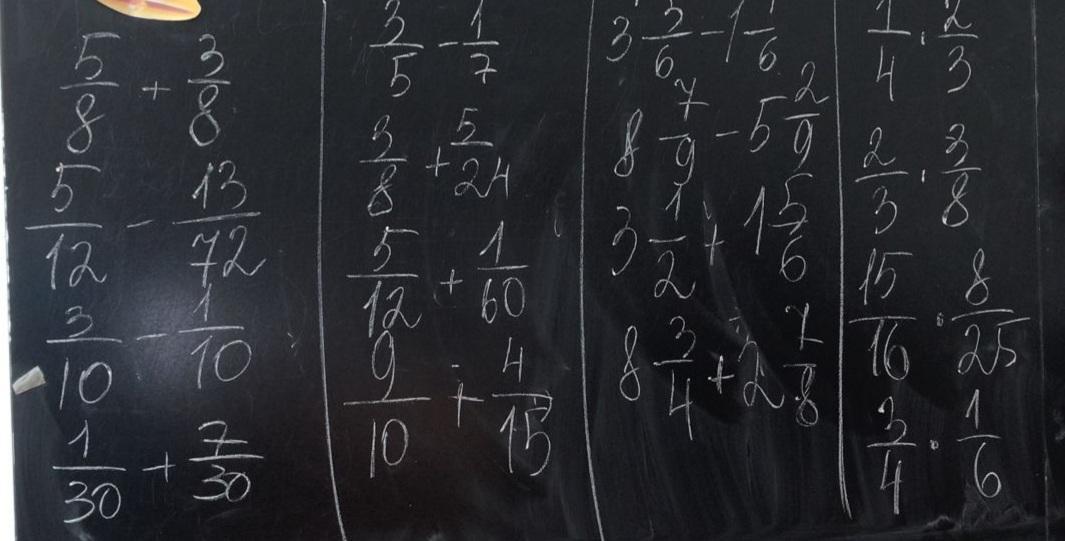 5/8 + 3/8
5/12 - 13/72
3/10 - 1/10
1/30 + 7/30
3/5 - 1/7
3/8 + 5/24
5/12 + 1/60
9/10 + 4/15
3 5/6 - 1 1/6
8 7/9 - 5 2/9
3 1/2 + 1 5/6
8 3/4 + 2 7/8
1/4 · 2/3
2/3 · 3/8
15/16 · 8/25
3/4 · 1/6